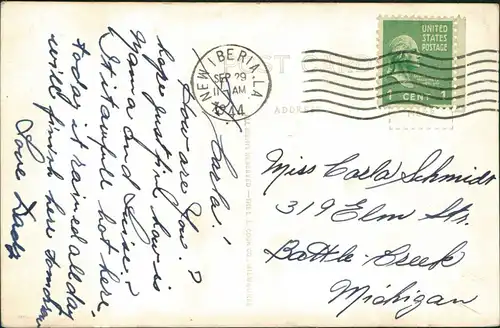 Hi Carla!
How are you?
hope just fine how is
Mama and Susie?
It is awfull hot here,
today it rained all day
will finish here tomorrow
Love Daddy
POST CARD
ADDRESS
NEW IBERIA, LA.
SEP 29
11 AM
1944
UNITED
STATES
POSTAGE
1 CENT 1
Miss Carla Schmidt
319 Elm Str.
Battle-Creek
Michigan